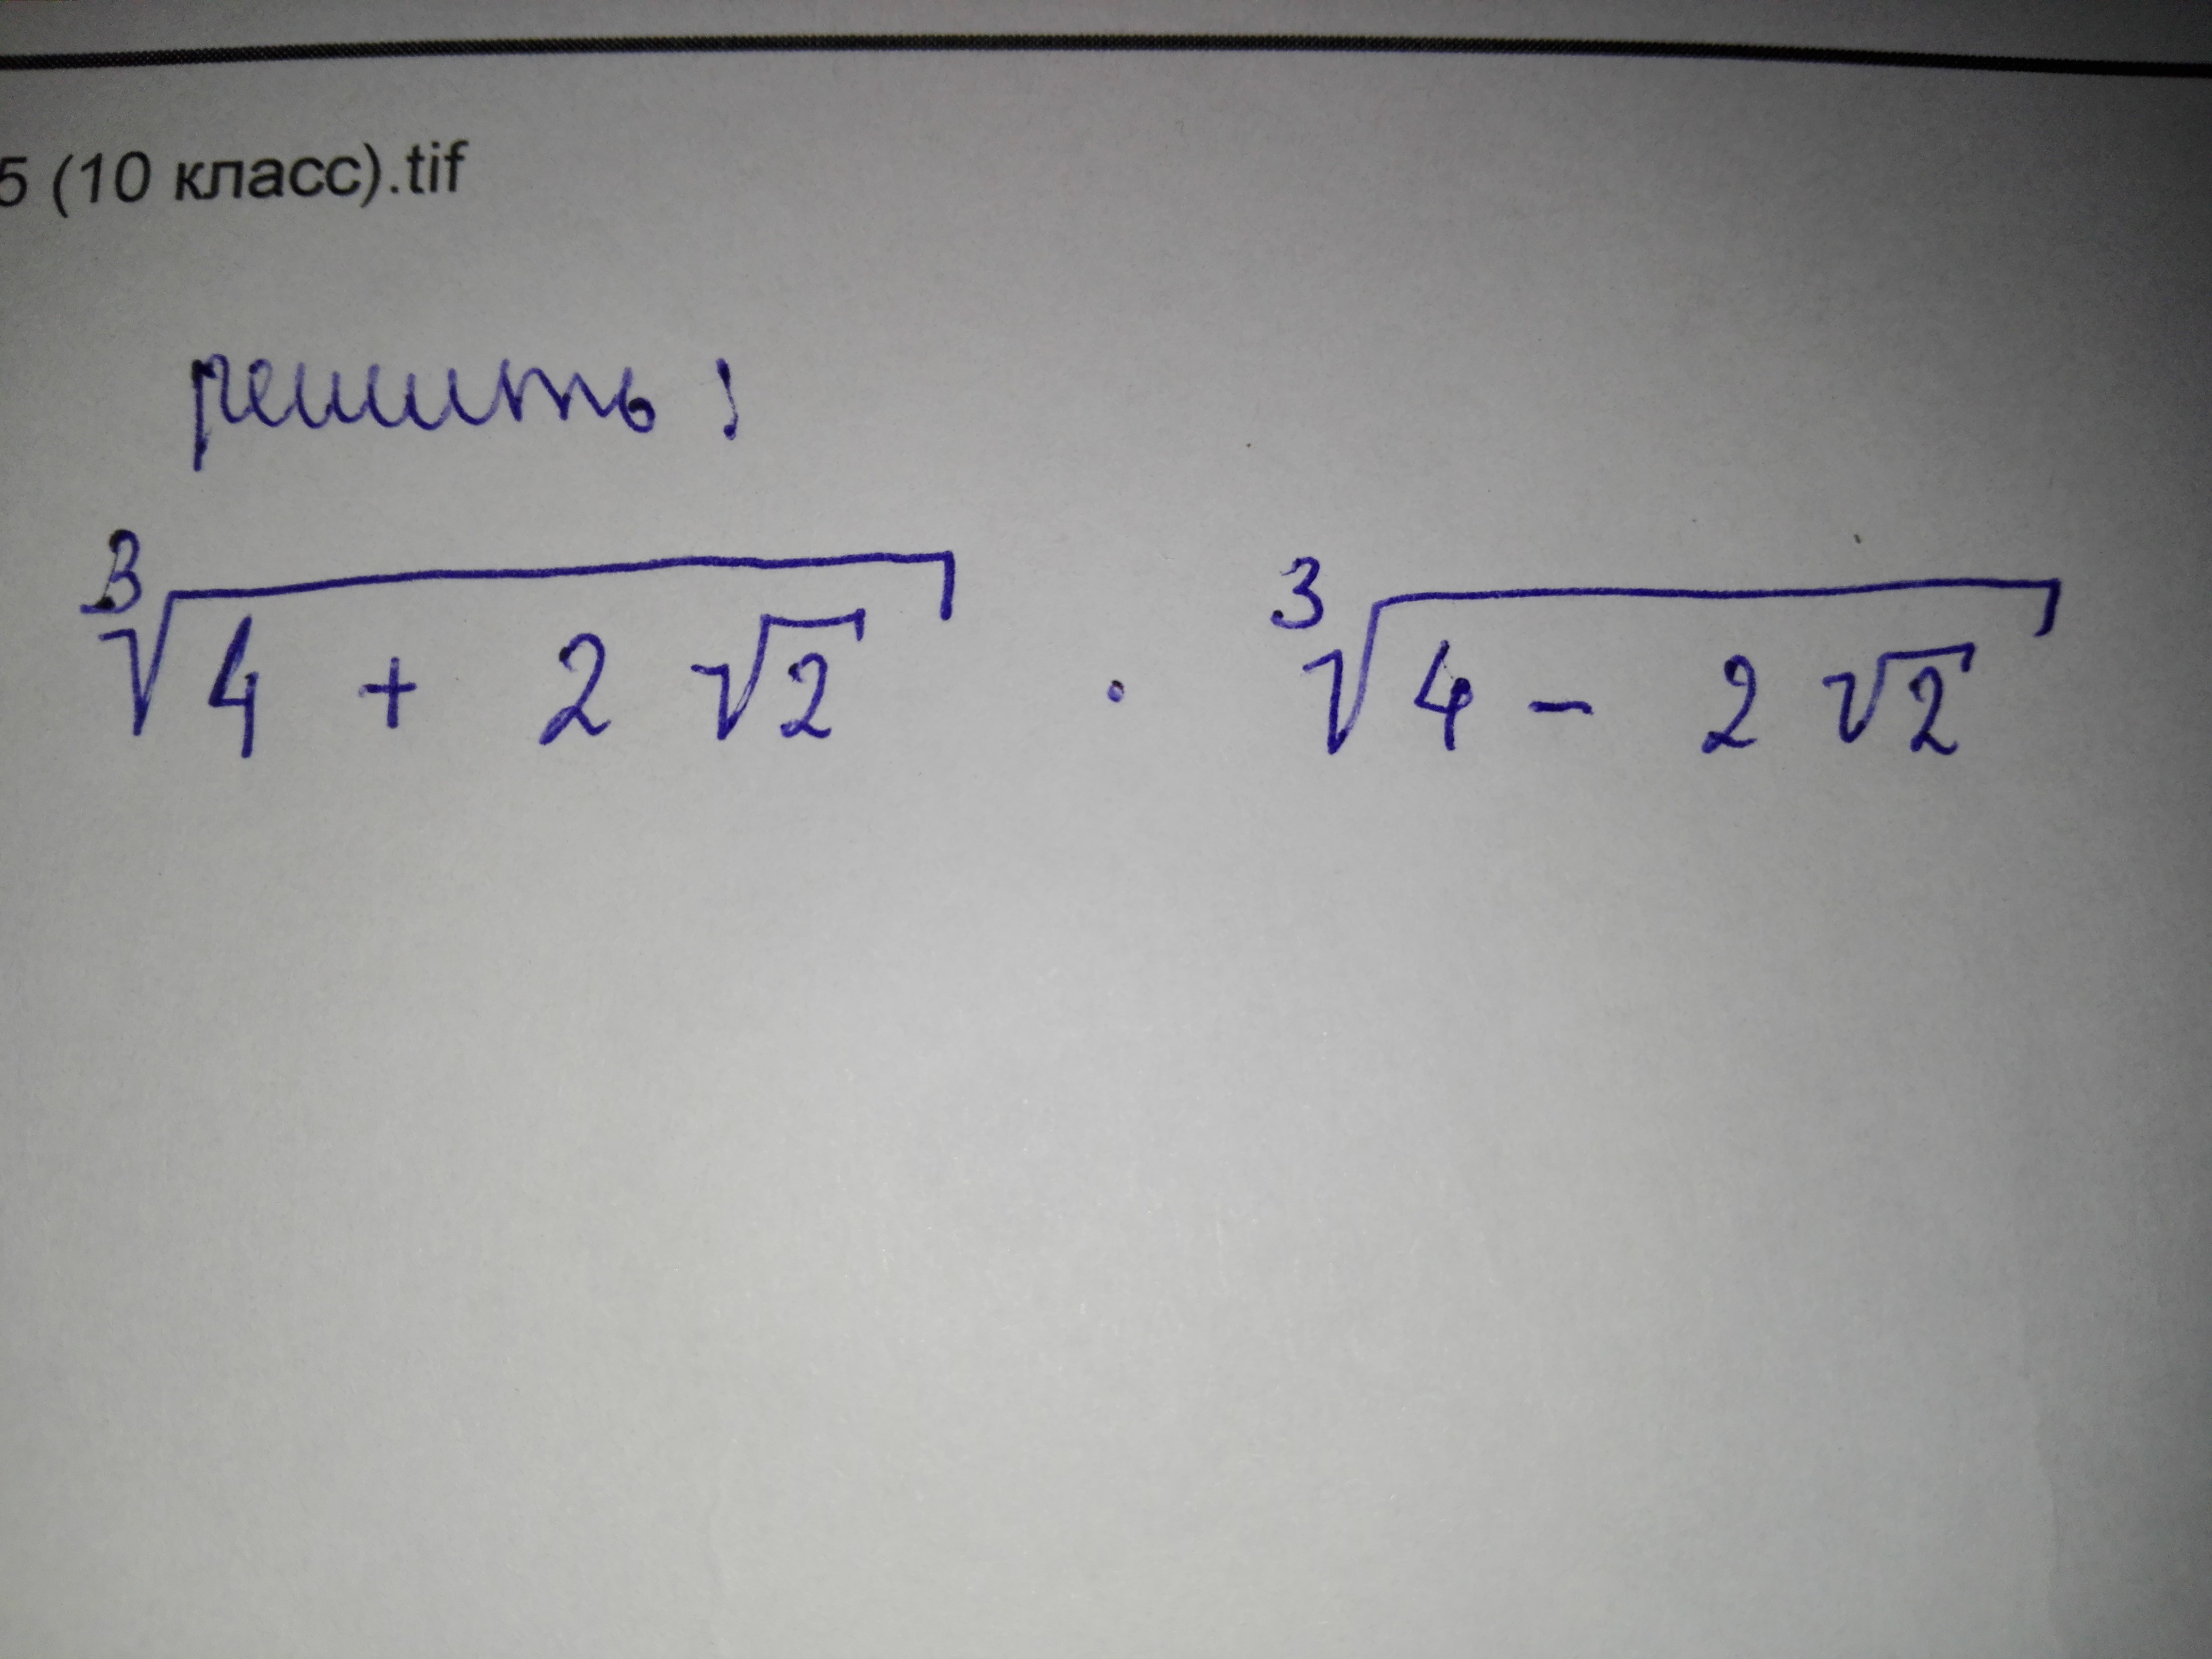 5 (10 класс).tif
решить:
∛(4 + 2√2) · ∛(4 - 2√2)